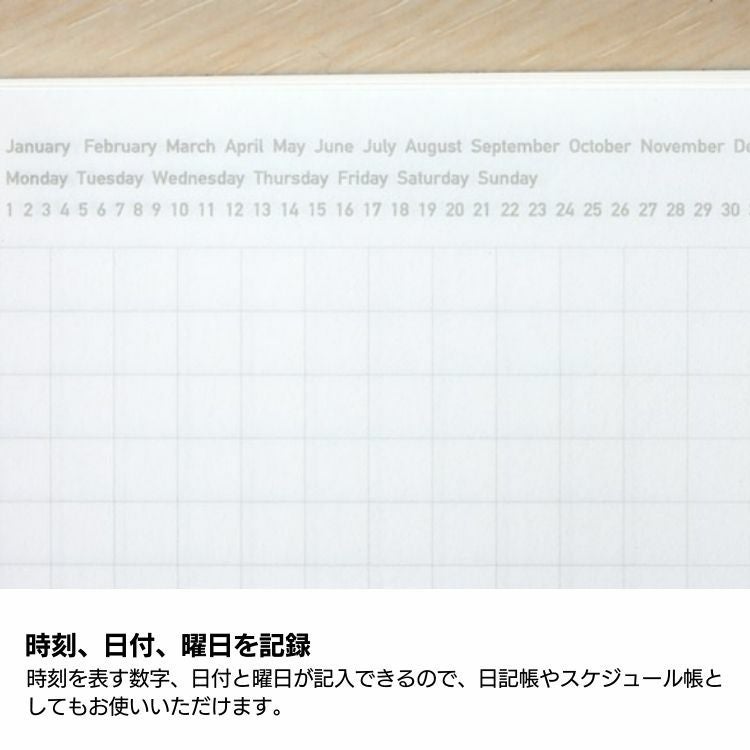 January February March April May June July August September October November
Monday Tuesday Wednesday Thursday Friday Saturday Sunday
1 2 3 4 5 6 7 8 9 10 11 12 13 14 15 16 17 18 19 20 21 22 23 24 25 26 27 28 29 30
時刻、日付、曜日を記録
時刻を表す数字、日付と曜日が記入できるので、日記帳やスケジュール帳と
してもお使いいただけます。